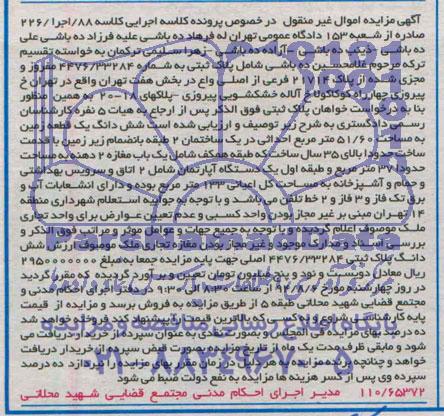 آگهی مزایده اموال غیر منقول در خصوص پرونده کلاسه اجرایی کلاسه ۸۸/اجرا/۲۲۶
صادره از شعبه ۱۵۳ دادگاه عمومی تهران له فرهاد ده باشی علیه فرزاد ده باشی علی
ده باشی - ده باشی - آزاده ده باشی - زهرا سلیمی ترکمان به خواسته تقسیم
ترکه مرحوم غلامحسین ده باشی شامل پلاک ثبتی به شماره ۴۴۷۶/۳۳۲۸۴ مفروز و
مجزی شده از پلاک فرعی از اصلی واقع در بخش هفت تهران واقع در تهران خ
پیروزی چهارراه کوکاکولا خ آلاله خشکشویی پیروزی - پلاکهای ۲۰۰ به همین منظور
بنا به درخواست خواهان پلاک ثبتی فوق الذکر پس از ارجاع به هیات ۵ نفره کارشناسان
رسمی دادگستری به شرح زیر توصیف و ارزیابی شده است شش دانگ یک قطعه زمین
به مساحت ۵۱/۶۰ متر مربع احداثی در یک ساختمان ۲ طبقه بانضمام زیر زمین با قدمت
ساخت حدودا بالای ۳۵ سال ساخت که طبقه همکف شامل یک باب مغازه ۲ دهنه به مساحت
حدودا ۳۷ متر مربع و طبقه اول یک دستگاه آپارتمان شامل ۲ اتاق و سرویس بهداشتی
و حمام و آشپزخانه به مساحت کل اعیانی ۱۳۳ متر مربع بوده و دارای انشعابات آب و
برق تک فاز و ۳ فاز و ۲ خط تلفن می باشد و با توجه به جوابیه استعلام شهرداری منطقه
۱۴ تهران مبنی بر غیر مجاز بودن واحد کسبی و عدم تعیین عوارض برای واحد تجاری
ملک موصوف اعلام گردیده و با توجه به جمیع جهات و عوامل موثر و مراتب فوق الذکر و
بررسی اسناد و مدارک موجود و غیر مجاز بودن مغازه تجاری ملک موصوف ارزش شش
دانگ پلاک ثبتی ۴۴۷۶/۳۳۲۸۴ اصلی جهت پایه مزایده جمعا به مبلغ ۲۹۵۰۰۰۰۰۰۰
ریال معادل دویست و نود و پنج میلیون تومان تعیین و برآورد گردیده که مقرر گردید
در روز چهارشنبه مورخ ۹۴/۸/۶ از ساعت ۸:۳۰ الی ۹:۳۰ در دفتر اجرای احکام مدنی و
مجتمع قضایی شهید محلاتی طبقه ۵ از طریق مزایده به فروش برسد و مزایده از قیمت
پایه کارشناسی شروع و به کسی که بالاترین قیمت را پیشنهاد کند فروخته خواهد شد
ده درصد بهای مزایده فی المجلس به صورت نقدی به عنوان سپرده از خریدار دریافت می
شود و مابقی ظرف مدت یک ماه از تاریخ مزایده به صورت قبض سپرده از خریدار دریافت
خواهد و چنانچه برنده مزایده به هر دلیل در زمان مقرر بهای مزایده را نپردازد ده درصد
سپرده وی پس از کسر هزینه ها مزایده به نفع دولت ضبط می شود
۱۱۰/۶۵۳۷۲ مدیر اجرای احکام مدنی مجتمع قضایی شهید محلاتی